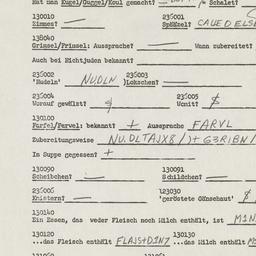 Hat man Kugel/Guggel/Koul gemacht? Schalet?
130010 236001
Zimmes? — Spätzel? CAUEDELSE
138040
Grimsel/Frimsel: Aussprache? — Wann zubereitet?
Auch bei Nichtjuden bekannt?
236002 236003
'Nudeln' NUDLN )Lokschen? —
236004 236005
Worauf gewälzt? Ucnit? $
130100
Farfel/Farvel: bekannt? + Aussprache FARVL
Zubereitungsweise NU.DLTAJX8/)+G3RIBN/
In Suppe gegessen? +
130090 130091
Scheibchen? — Schildchen? —
236006 123030
Knistern? — 'geröstete Gänschaut' $
130140
Ein Essen, das weder Fleisch noch Milch enthält, ist M1N
130120 130130
...das Fleisch enthält FLAJS+D1N7 ...das Milch enthält M